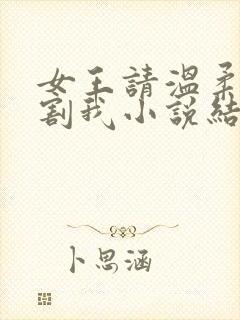 女王請溫柔
割我小說結
卜思涵